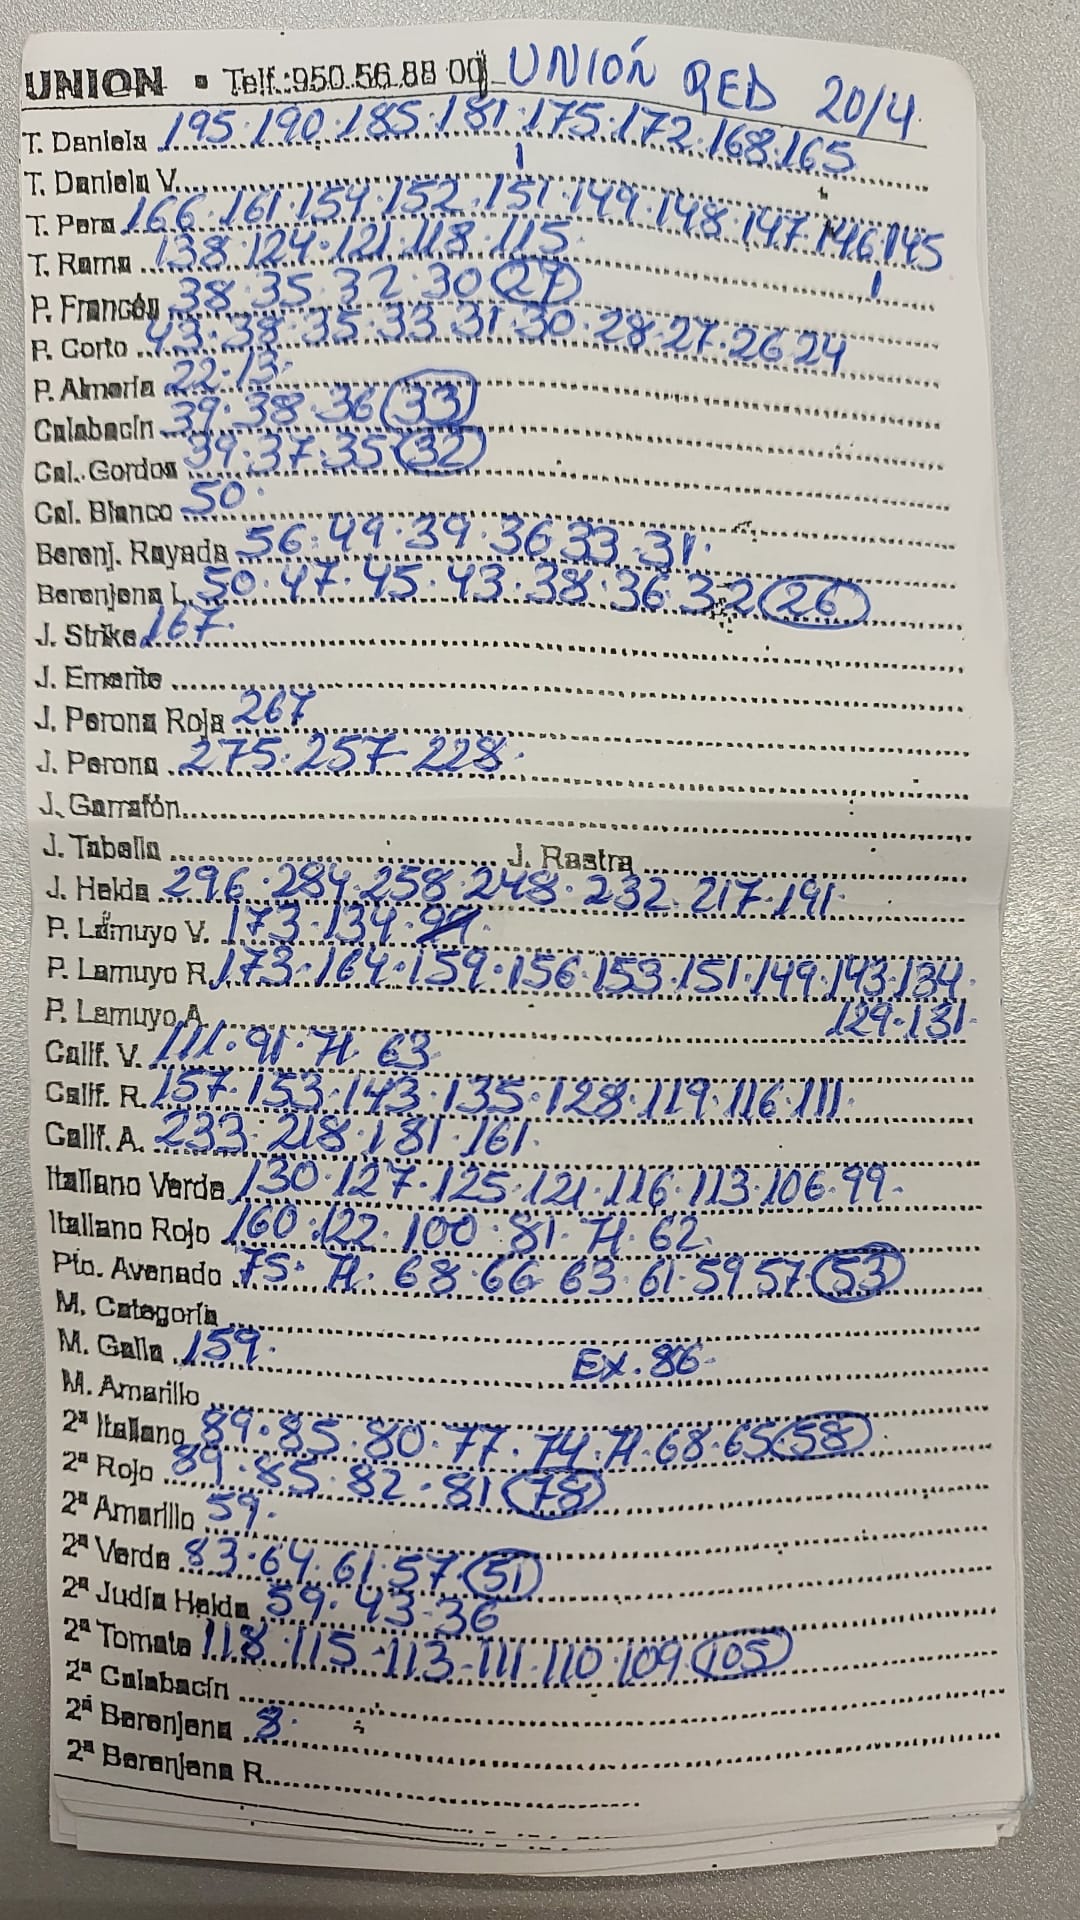 UNION • Telf.:950.56.88 00 UNIÓN RED 20/4.
T. Daniela 195·190·185·181·175·172·168·165
T. Daniela V.
T. Pera 166·161·154·152·151·149·148·147·146·145
T. Rama 138·124·121·118·115·
P. Francés 38·35·32·30 27
P. Corto 43·38·35·33·31·30·28·27·26 24
P. Almería 22·13·
Calabacín 39·38·36 33
Cal. Gordos 39·37·35 32
Cal. Blanco 50·
Berenj. Rayada 56·49·39·36 33·31·
Berenjena L. 50·47·45·43·38·36·32 26
J. Strike 167·
J. Emerite
J. Perona Roja 267
J. Perona 275·257-228·
J. Garrafón
J. Tabella J. Rastra
J. Helda 296·284·258·248·232·217·191·
P. Lamuyo V. 173·134·
P. Lamuyo R. 173·164·159·156·153·151·149·143·134·
129·131·
P. Lamuyo A.
Calif. V. 111·91·71·63
Calif. R. 157·153·143·135·128·119·116·111·
Calif. A. 233·218·181·161·
Italiano Verde 130·127·125·121·116·113·106·99-
Italiano Rojo 160·122·100·81·71·62·
Pto. Avenado 75·71·68·66·63·61·59 57·53
M. Categoría
M. Galia 159· Ex. 86-
M. Amarillo
2ª Italiano 89·85·80·77·74·71·68·65 58
2ª Rojo 89·85·82·81 78
2ª Amarillo 59·
2ª Verde 83·64·61·57·51
2ª Judía Helda 59·43·36
2ª Tomate 118·115·113-111·110·109 105
2ª Calabacín
2ª Berenjena 8·
2ª Berenjena R.